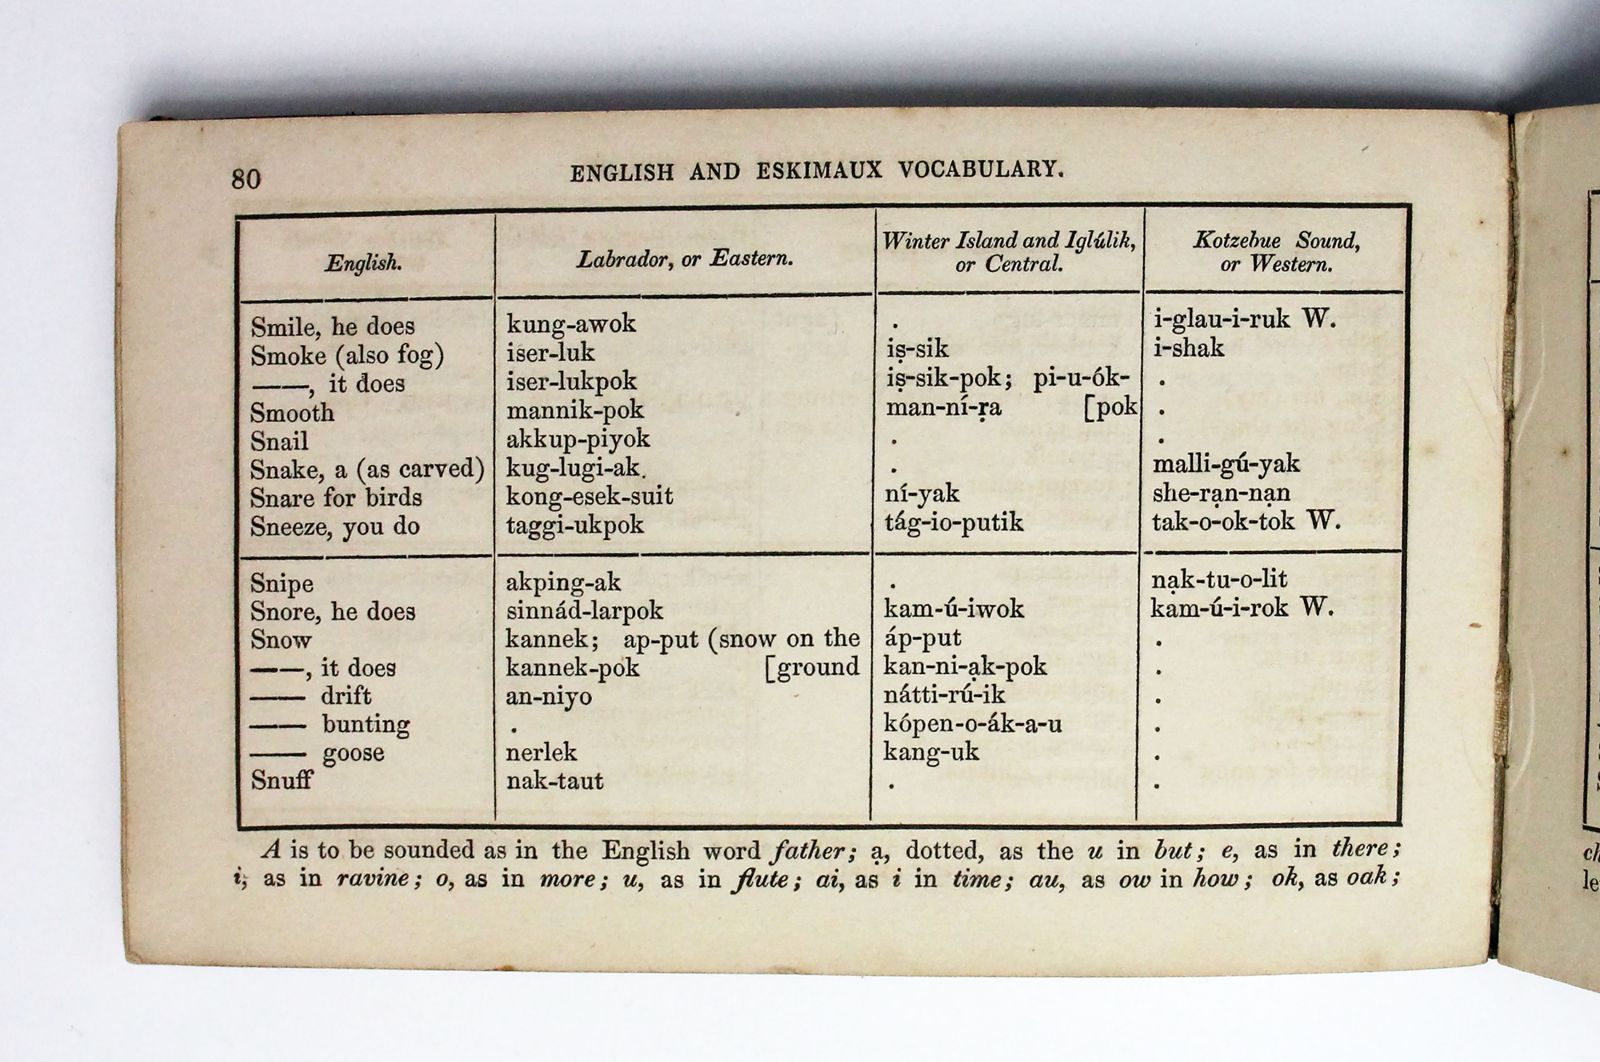 80 ENGLISH AND ESKIMAUX VOCABULARY.
English. Labrador, or Eastern. Winter Island and Iglúlik, or Central. Kotzebue Sound, or Western.
Smile, he does kung-awok . i-glau-i-ruk W.
Smoke (also fog) iser-luk iṣ-sik i-shak
——, it does iser-lukpok iṣ-sik-pok; pi-u-ók- .
Smooth mannik-pok man-ní-ṛa [pok .
Snail akkup-piyok . .
Snake, a (as carved) kug-lugi-ak. . malli-gú-yak
Snare for birds kong-esek-suit ní-yak she-rạn-nạn
Sneeze, you do taggi-ukpok tág-io-putik tak-o-ok-tok W.
Snipe akping-ak . nạk-tu-o-lit
Snore, he does sinnád-larpok kam-ú-iwok kam-ú-i-rok W.
Snow kannek; ap-put (snow on the áp-put .
——, it does kannek-pok [ground kan-ni-ạk-pok .
—— drift an-niyo nátti-rú-ik .
—— bunting . kópen-o-ák-a-u .
—— goose nerlek kang-uk .
Snuff nak-taut . .
A is to be sounded as in the English word father; ạ, dotted, as the u in but; e, as in there;
i, as in ravine; o, as in more; u, as in flute; ai, as i in time; au, as ow in how; ok, as oak;